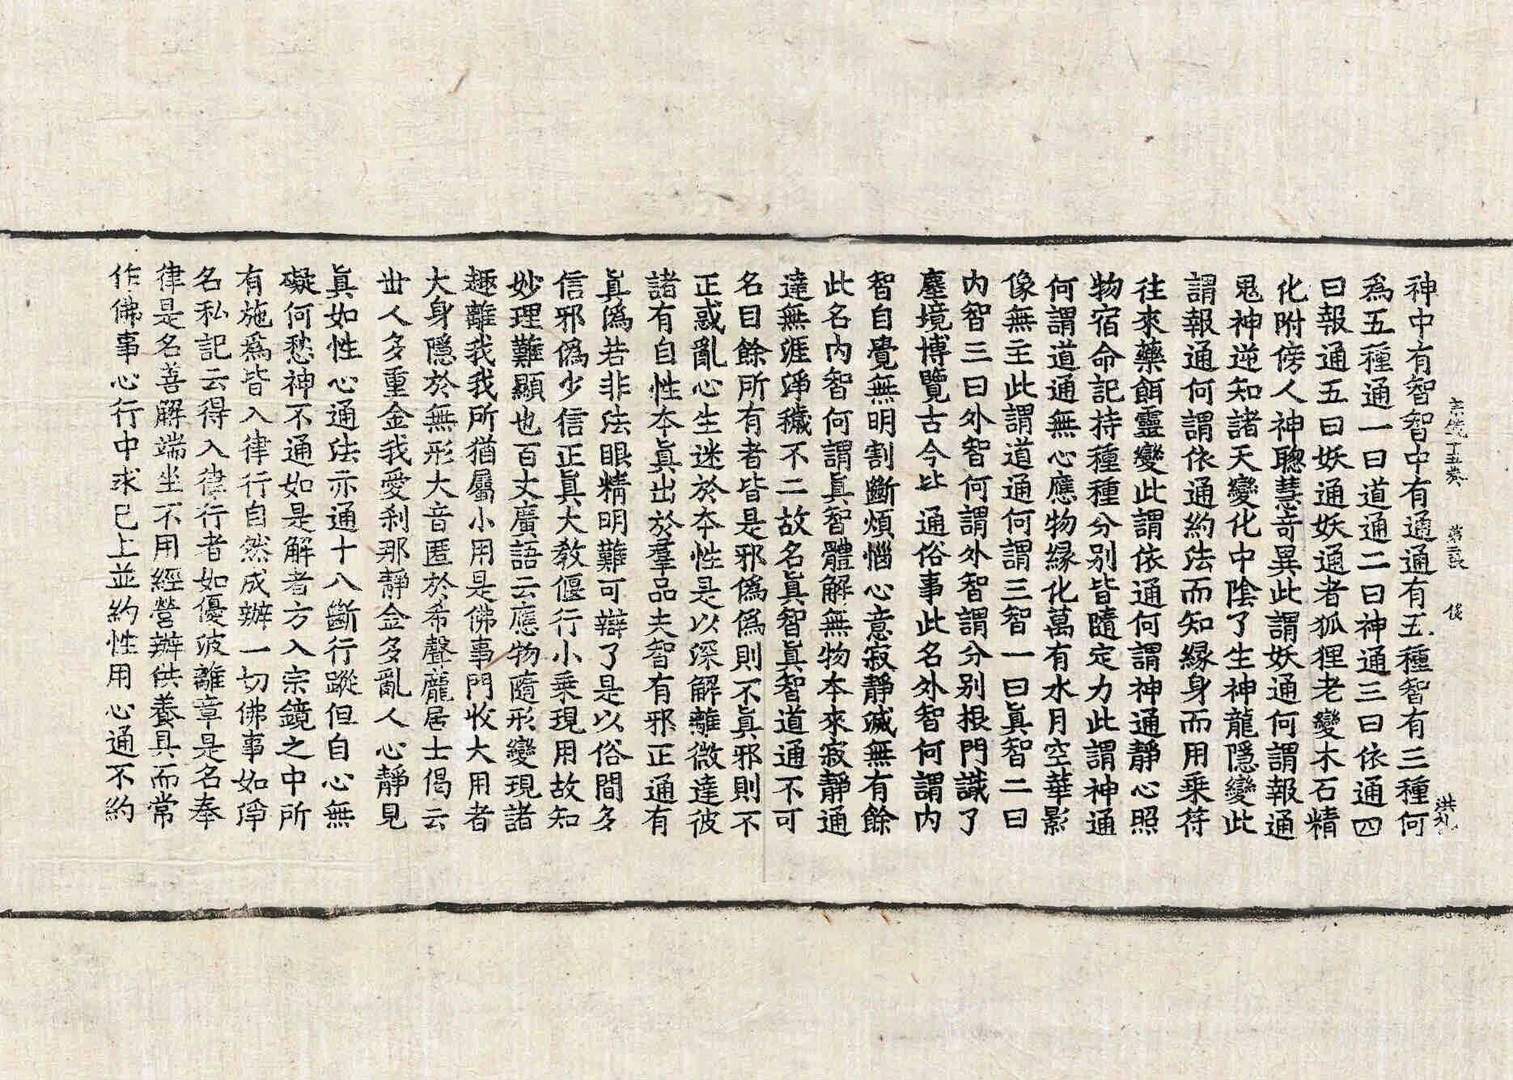 宗鏡十五卷 第三段 後 洪礼
神中有智智中有通通有五種智有三種何
爲五種通一曰道通二曰神通三曰依通四
曰報通五曰妖通妖通者狐狸老變木石精
化附傍人神聰慧奇異此謂妖通何謂報通
鬼神逆知諸天變化中陰了生神龍隱變此
謂報通何謂依通約法而知緣身而用乘符
往來藥餌靈變此謂依通何謂神通靜心照
物宿命記持種種分別皆隨定力此謂神通
何謂道通無心應物緣化萬有水月空華影
像無主此謂道通何謂三智一曰眞智二曰
內智三曰外智何謂外智謂分別根門識了
塵境博覽古今比通俗事此名外智何謂內
智自覺無明割斷煩惱心意寂靜滅無有餘
此名內智何謂眞智體解無物本來寂靜通
達無涯淨穢不二故名眞智眞智道通不可
名目餘所有者皆是邪僞僞則不眞邪則不
正惑亂心生迷於本性是以深解離微達彼
諸有自性本眞出於羣品夫智有邪正通有
眞僞若非法眼精明難可辯了是以俗間多
信邪僞少信正眞大敎偃行小乘現用故知
妙理難顯也百丈廣語云應物隨形變現諸
趣離我我所猶屬小用是佛事門收大用者
大身隱於無形大音匿於希聲龐居士偈云
世人多重金我愛刹那靜金多亂人心靜見
眞如性心通法亦通十八斷行蹤但自心無
礙何愁神不通如是解者方入宗鏡之中所
有施爲皆入律行自然成辦一切佛事如淨
名私記云得入律行者如優波離章是名奉
律是名善解端坐不用經營辦供養具而常
作佛事心行中求已上並約性用心通不約